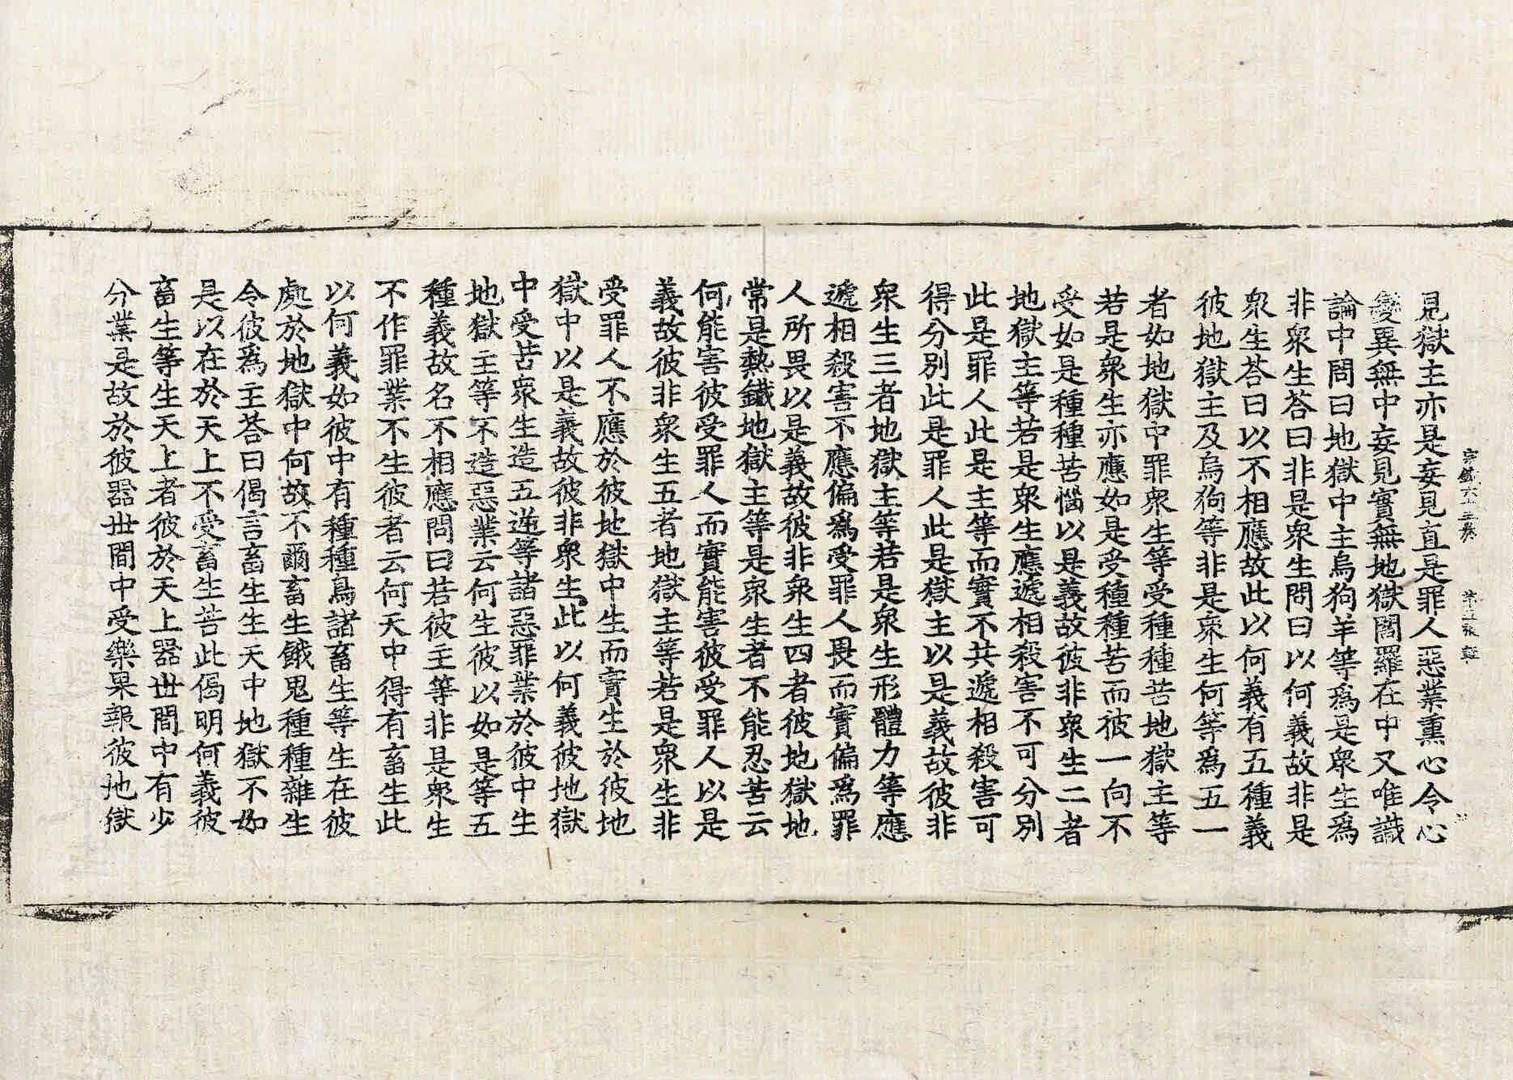 宗鏡六十三卷 第三張 輕
見獄主亦是妄見直是罪人惡業熏心令心
變異無中妄見實無地獄閻羅在中又唯識
論中問曰地獄中主烏狗羊等爲是衆生爲
非衆生荅曰非是衆生問曰以何義故非是
衆生荅曰以不相應故此以何義有五種義
彼地獄主及烏狗等非是衆生何等爲五一
者如地獄中罪衆生等受種種苦地獄主等
若是衆生亦應如是受種種苦而彼一向不
受如是種種苦惱以是義故彼非衆生二者
地獄主等若是衆生應遞相殺害不可分別
此是罪人此是主等而實不共遞相殺害可
得分別此是罪人此是獄主以是義故彼非
衆生三者地獄主等若是衆生形體力等應
遞相殺害不應偏爲受罪人畏而實偏爲罪
人所畏以是義故彼非衆生四者彼地獄地
常是熱鐵地獄主等是衆生者不能忍苦云
何能害彼受罪人而實能害彼受罪人以是
義故彼非衆生五者地獄主等若是衆生非
受罪人不應於彼地獄中生而實生於彼地
獄中以是義故彼非衆生此以何義彼地獄
中受苦衆生造五逆等諸惡罪業於彼中生
地獄主等不造惡業云何生彼以如是等五
種義故名不相應問曰若彼主等非是衆生
不作罪業不生彼者云何天中得有畜生此
以何義如彼中有種種鳥諸畜生等生在彼
處於地獄中何故不爾畜生餓鬼種種雜生
令彼爲主荅曰偈言畜生生天中地獄不如
是以在於天上不受畜生苦此偈明何義彼
畜生等生天上者彼於天上器世間中有少
分業是故於彼器世間中受樂果報彼地獄